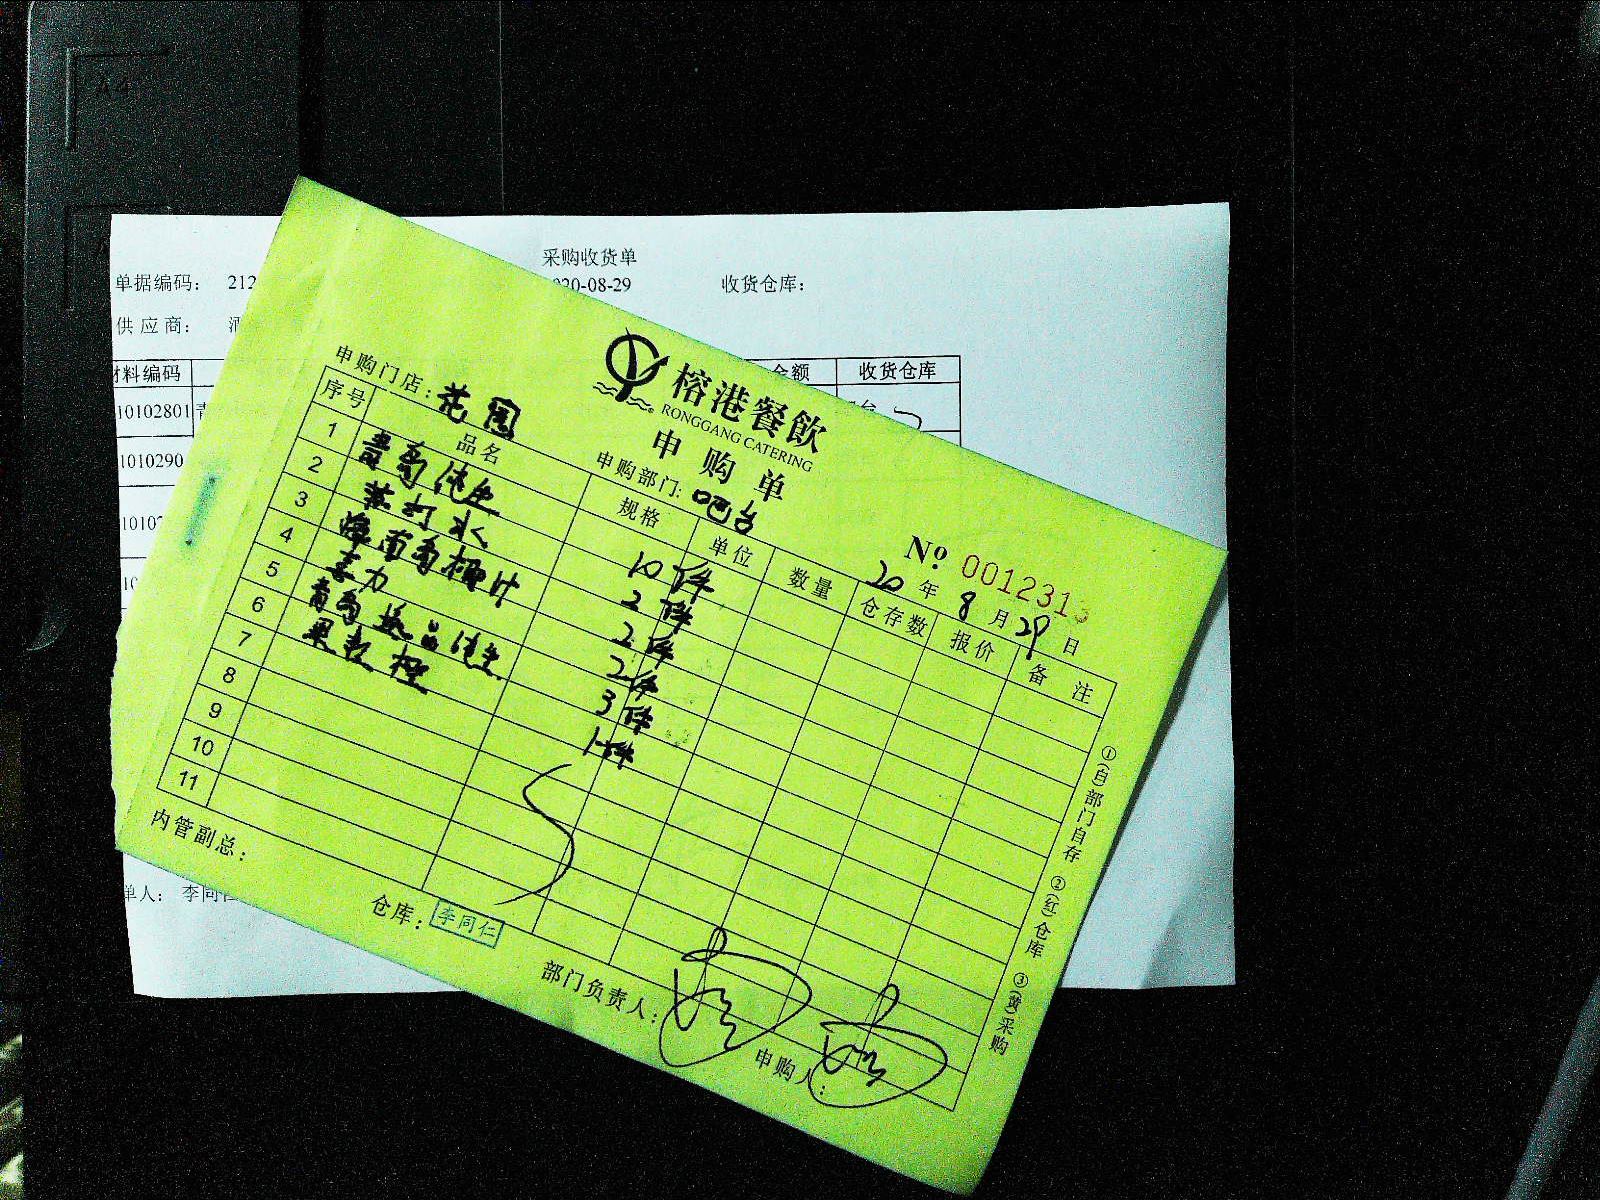 采购收货单
单据编码： 212
20-08-29
收货仓库：
供应商： 酒
材料编码
金额
收货仓库
10102801 青
1010290
1010
单人： 李同仁
榕港餐飲
RONGGANG CATERING
申购单
申购门店：花园
申购部门：吧台
№ 0012313
20年8月29日
序号 品名 规格 单位 数量 仓存数 报价 备注
1 青岛纯生 10件
2 苏打水 2件
3 海南香椰汁 2件
4 喜力 2件
5 青岛逸品纯生 3件
6 果粒橙 1件
7
8
9
10
11
内管副总：
仓库：李同仁
部门负责人：
申购人：
①(白)部门自存 ②(红)仓库 ③(黄)采购